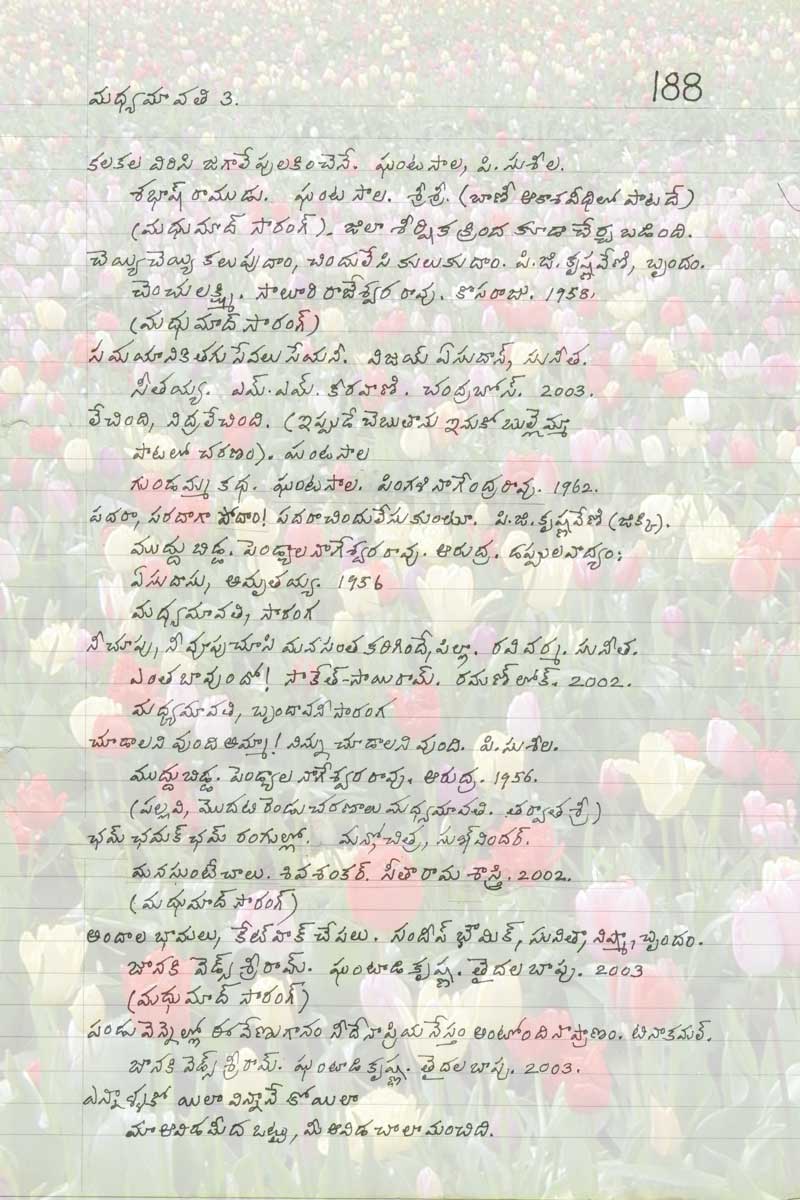 188
మధ్యమావతి 3.
కలకల విరిసి జగాలే పులకించెనే. ఘంటసాల, పి. సుశీల.
శభాష్ రాముడు. ఘంటసాల. శ్రీశ్రీ. (బాణీ ఆకాశవీధిలో పాటదే)
(మధుమాద్ సారంగ్). జిలా శీర్షిక క్రింద కూడా చేర్చబడింది.
చెయ్యి చెయ్యి కలుపుదాం, చిందులేసి కులుకుదాం. పి.జి. కృష్ణవేణి, బృందం.
చెంచులక్ష్మి. సాలూరి రాజేశ్వర రావు. కొసరాజు. 1958.
(మధుమాద్ సారంగ్)
సమయానికి తగు సేవలు సేయనీ. విజయ్ ఏసుదాస్, సునీత.
సీతయ్య. ఎమ్.ఎమ్. కీరవాణి. చంద్రబోస్. 2003.
లేచింది, నిద్రలేచింది. (ఇప్పుడే చెబుతాను ఇనుకో బుల్లెమ్మా
పాటలో చరణం). ఘంటసాల
గుండమ్మ కథ. ఘంటసాల. పింగళి నాగేంద్రరావు. 1962.
పదరా, సరదాగా పోదాం! పదరా చిందులేసుకుంటూ. పి.జి. కృష్ణవేణి (జిక్కి).
ముద్దుబిడ్డ. పెండ్యాల నాగేశ్వరరావు. ఆరుద్ర. డప్పుల వాద్యం:
ఏసుదాసు, అమృతయ్య. 1956
మధ్యమావతి, సారంగ
నీ చూపు, నీ వూపు చూసి మనసంత కరిగిందే, పిల్లా. రవివర్మ. సునీత.
ఎంత బావుందో! సాకేత్-సాయిరామ్. రమణ్ లోక్. 2002.
మధ్యమావతి, బృందావనీ సారంగ
చూడాలని వుంది అమ్మా! నిన్ను చూడాలని వుంది. పి. సుశీల.
ముద్దుబిడ్డ. పెండ్యాల నాగేశ్వరరావు. ఆరుద్ర. 1956.
(పల్లవి, మొదటి రెండు చరణాలు మధ్యమావతి. తర్వాత శ్రీ)
ఛమ్ ఛమక్ ఛమ్ రంగుల్లో. సుఖ్విందర్.
మనసుంటే చాలు. శివశంకర్. సీతారామ శాస్త్రి. 2002.
(మధుమాద్ సారంగ్)
అందాల భామలు, కేట్ వాక్ చేపలు. సందీప్ భౌమిక్, సునీత, నిష్మా, బృందం.
జానకి వెడ్స్ శ్రీరామ్. ఘంటాడి కృష్ణ. తైదల బాపు. 2003
(మధుమాద్ సారంగ్)
పండు వెన్నెల్లో ఈ వేణుగానం నీదే నా ప్రియ నేస్తం అంటోంది నా ప్రాణం. టీనా కమల్.
జానకి వెడ్స్ శ్రీరామ్. ఘంటాడి కృష్ణ. తైదల బాపు. 2003.
ఎన్నాళ్ళకో యిలా విన్నానే కోయిలా
మా ఆవిడ మీద ఒట్టు, మీ ఆవిడ చాలా మంచిది.